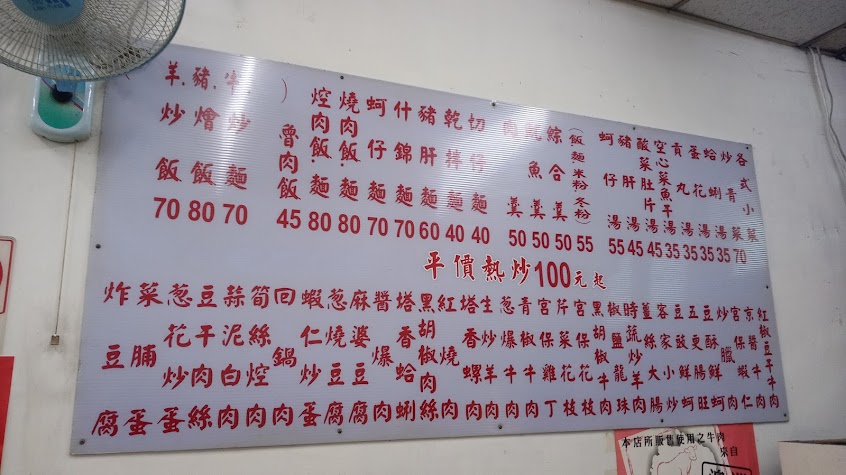 各式小菜
炒青菜 70
蛤蜊湯 35
蛋花湯 35
貢丸湯 35
空心菜魚干湯 35
酸菜肚片湯 45
豬肝湯 45
蚵仔湯 55
(飯麵米粉冬粉) 55
綜合羹 50
魚羹 50
肉羹 50
切仔麵 40
乾拌麵 40
豬肝麵 60
什錦麵 70
蚵仔麵 70
燒肉飯.麵 80
焢肉飯.麵 80
魯肉飯 45
牛炒麵 70
豬燴飯 80
羊炒飯 70
平價熱炒100元起
紅椒豆干牛肉
京醬牛肉
宮保蝦仁
炒臘肉
豆酥鮮蚵
五更腸旺
豆豉鮮蚵
客家小炒
薑絲大腸
時蔬炒羊肉
椒鹽龍珠
黑胡椒牛肉
宮保花枝
芹菜花枝
宮保雞丁
青椒牛肉
蔥爆牛肉
生炒羊肉
塔香螺肉
紅燒肉
黑胡椒肉絲
塔香蛤蜊
醬爆肉
麻婆豆腐
蔥燒豆腐
蝦仁炒蛋
回鍋肉
筍絲焢肉
蒜泥白肉
豆干肉絲
蔥花炒蛋
菜脯蛋
炸豆腐
本店所販售使用之牛肉
來自